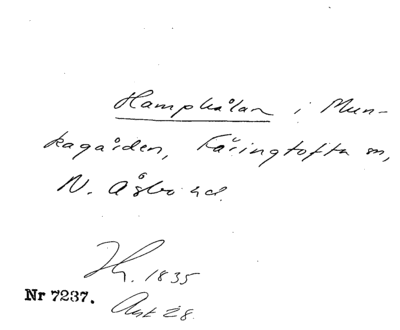 Hamphålan i Mun-
kagården, Färingtofta sn,
N. Åsbo hd.
Th. 1835
Nr 7237. Avt 28.